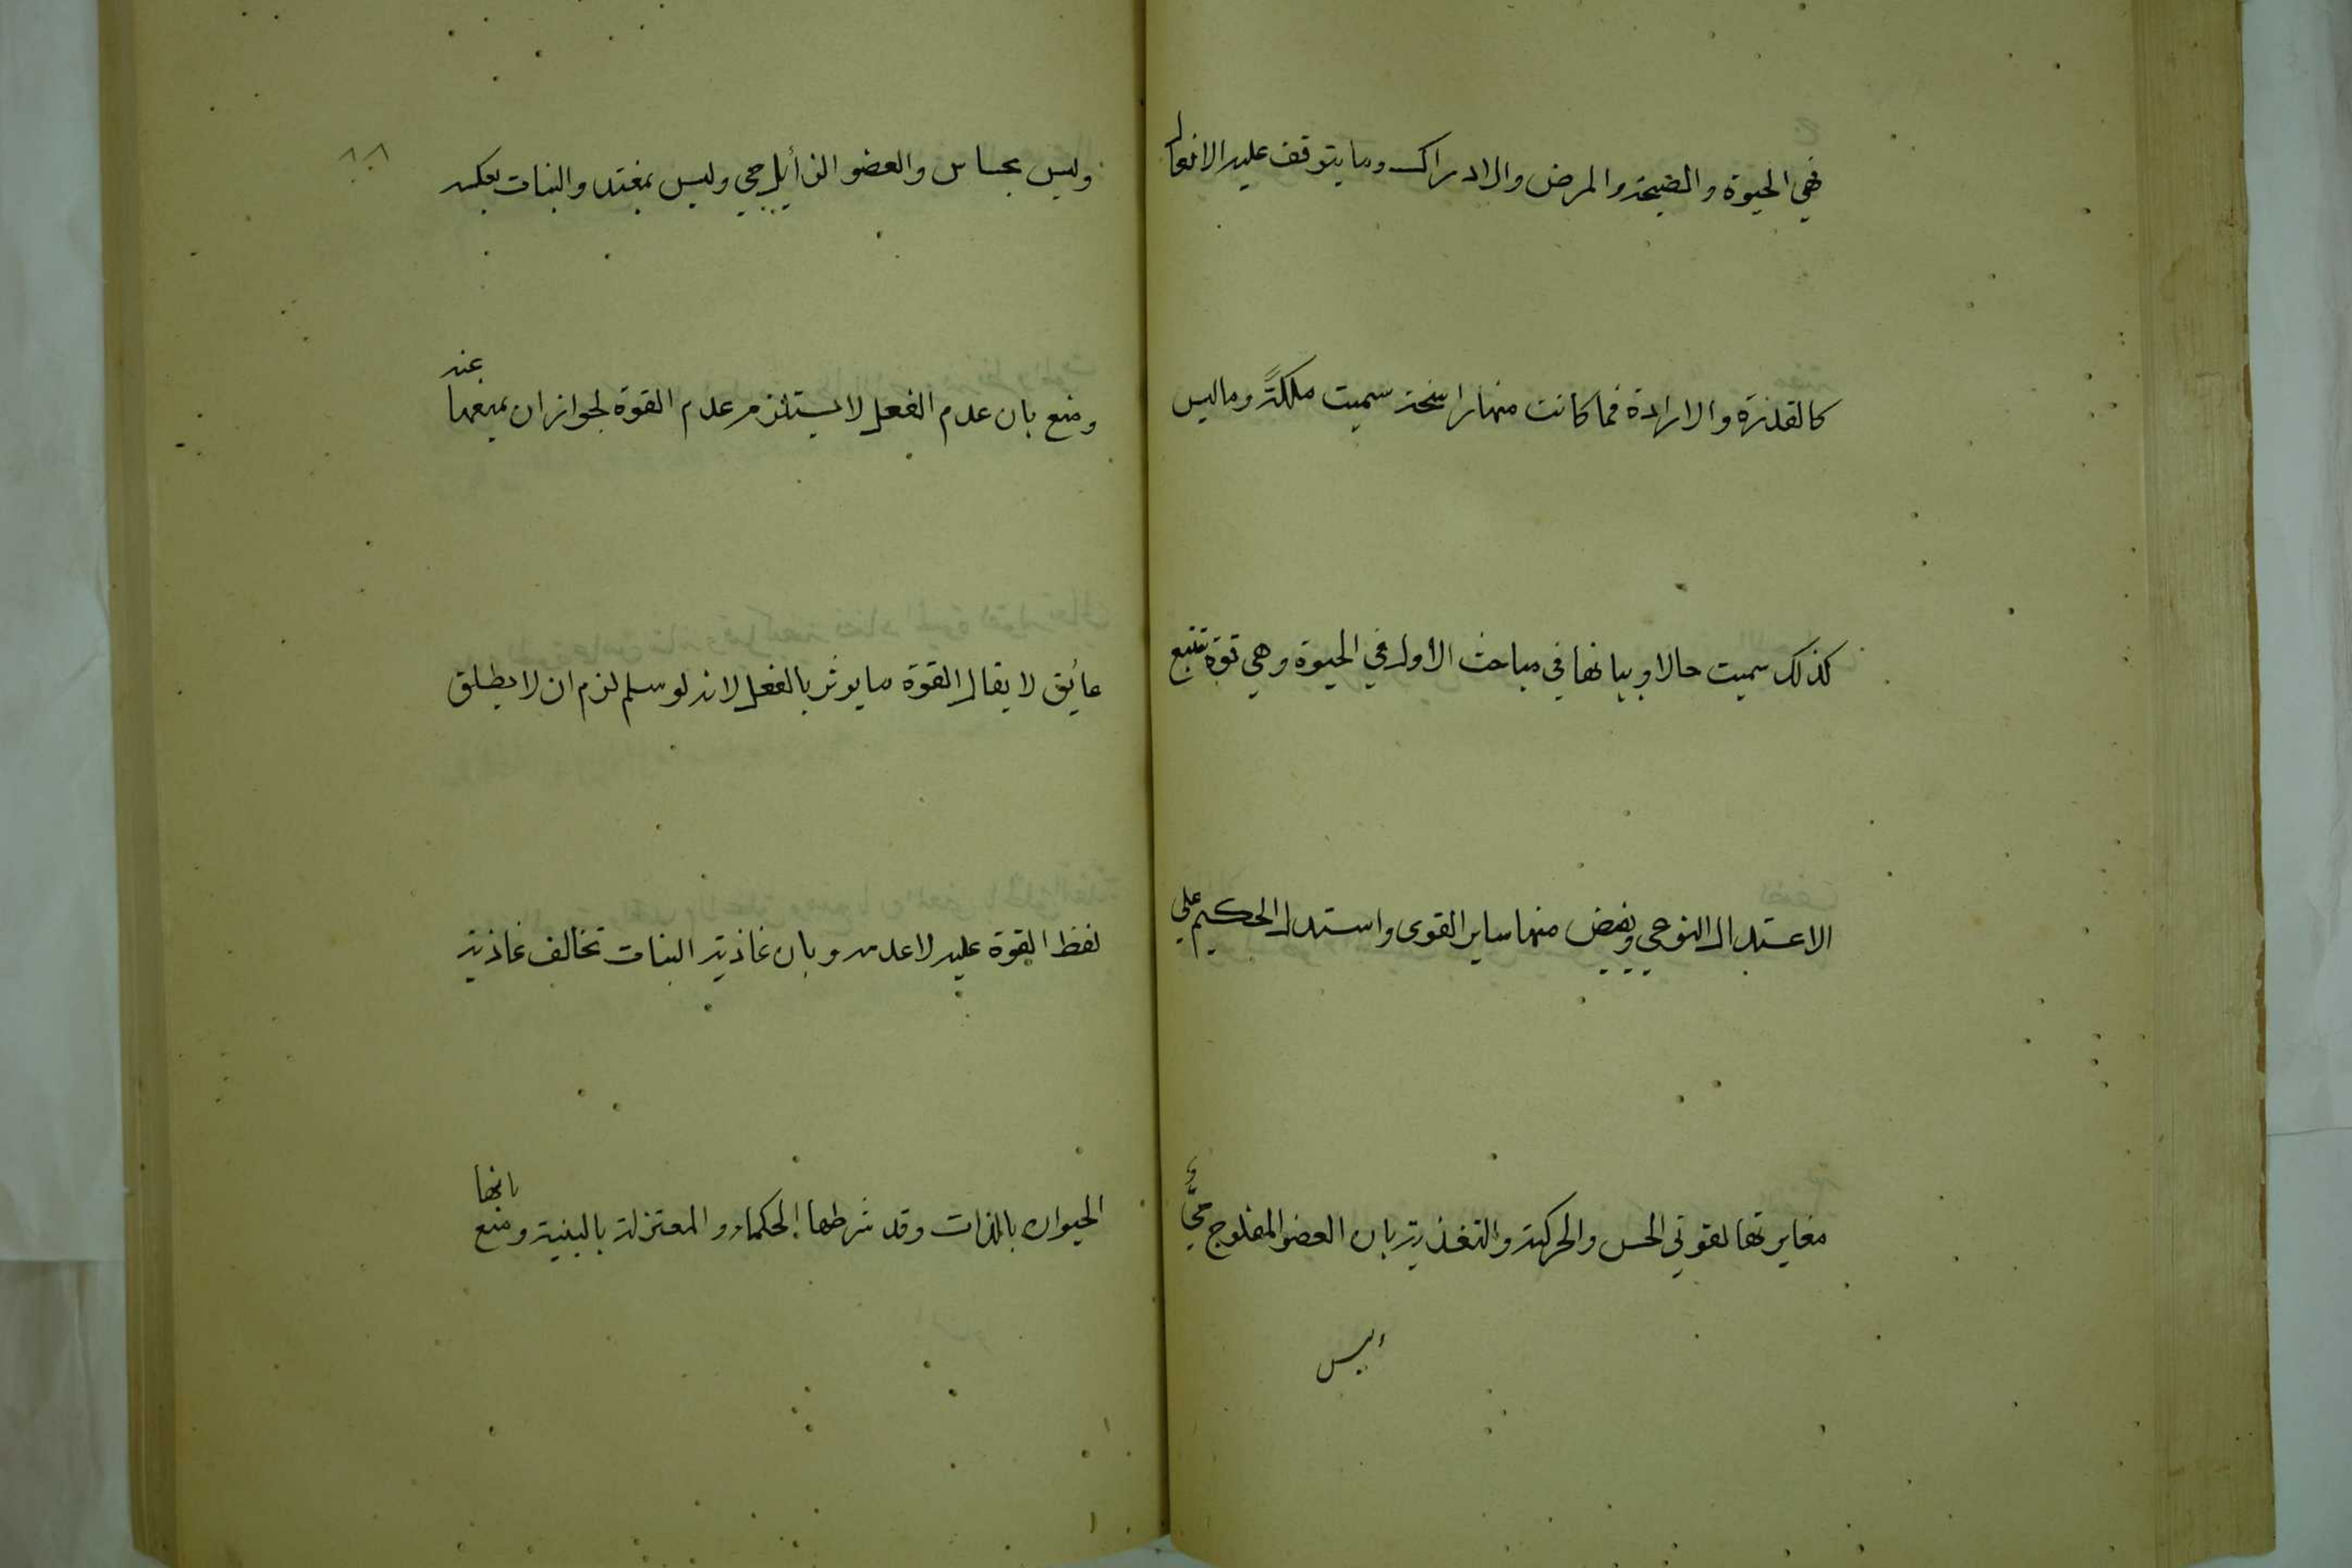 فهي الحيوة والصحة والمرض والادراك وما يتوقف عليه الافعال
كالقدرة والارادة فما كانت منها راسخة سميت ملكةً وما ليس
كذلك سميت حالا وبيانها في مباحث الاول في الحيوة وهي قوة تتبع
الاعتدال النوعي ويفيض منها ساير القوى واستدل الحكيم على
مغايرتها لقوتي الحس والحركة والتغذية بان العضو المفلوج حيٌّ و
ليس
وليس بحساس والعضو الذابل حي وليس بمغتد والنبات بعكسه
ومنع بان عدم الفعل لا يستلزم عدم القوة لجواز ان يمنعها عنه
عايق لا يقال القوة ما يوثر بالفعل لانه لو سلم لزم ان لا يطلق
لفظ القوة عليه لا عدمه وبان غاذية النبات تخالف غاذية
الحيوان بالذات وقد شرطها الحكماء والمعتزلة بالبنية ومنع بانها